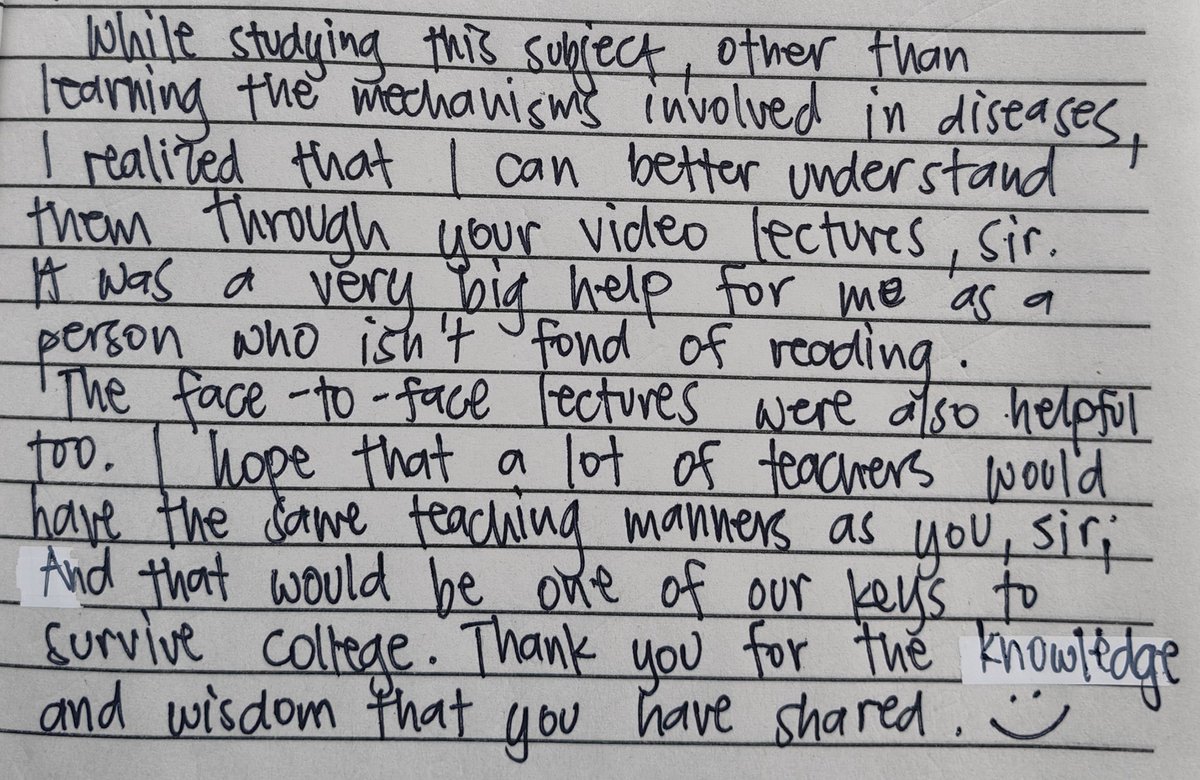 While studying this subject, other than
learning the mechanisms involved in diseases,
I realized that I can better understand
them through your video lectures, sir.
It was a very big help for me as a
person who isn't fond of reading.
The face-to-face lectures were also helpful
too. I hope that a lot of teachers would
have the same teaching manners as you, sir;
And that would be one of our keys to
survive college. Thank you for the knowledge
and wisdom that you have shared. :)